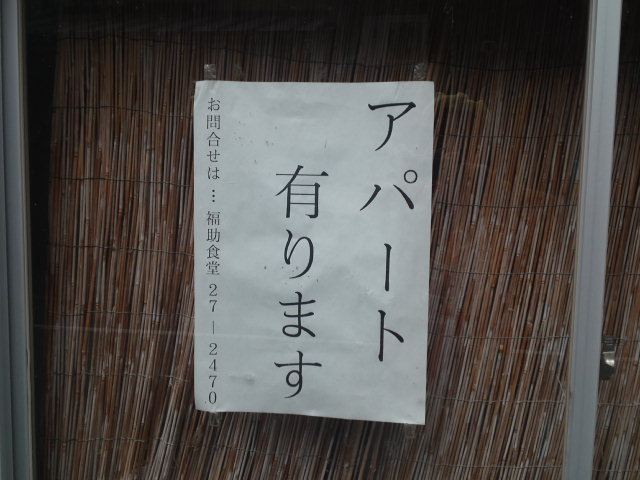 アパート
有ります
お問合せは…福助食堂 27―2470